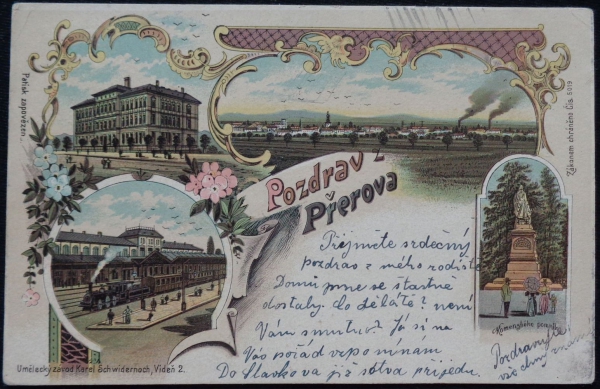 Pozdrav z
Přerova
Patisk zapovězen.
Zákonem chráněno Čís. 5019
Komenského pomník
Umělecký závod Karel Schwidernoch, Vídeň 2.
Přijmete srdečný
pozdrav z mého rodiště
Domů jsme se šťastně
dostaly. Co děláte? není
Vám smutno? Já si na
Vás pořád vzpomínám
Do Slavkova již sotva přijedu.
Pozdravujte